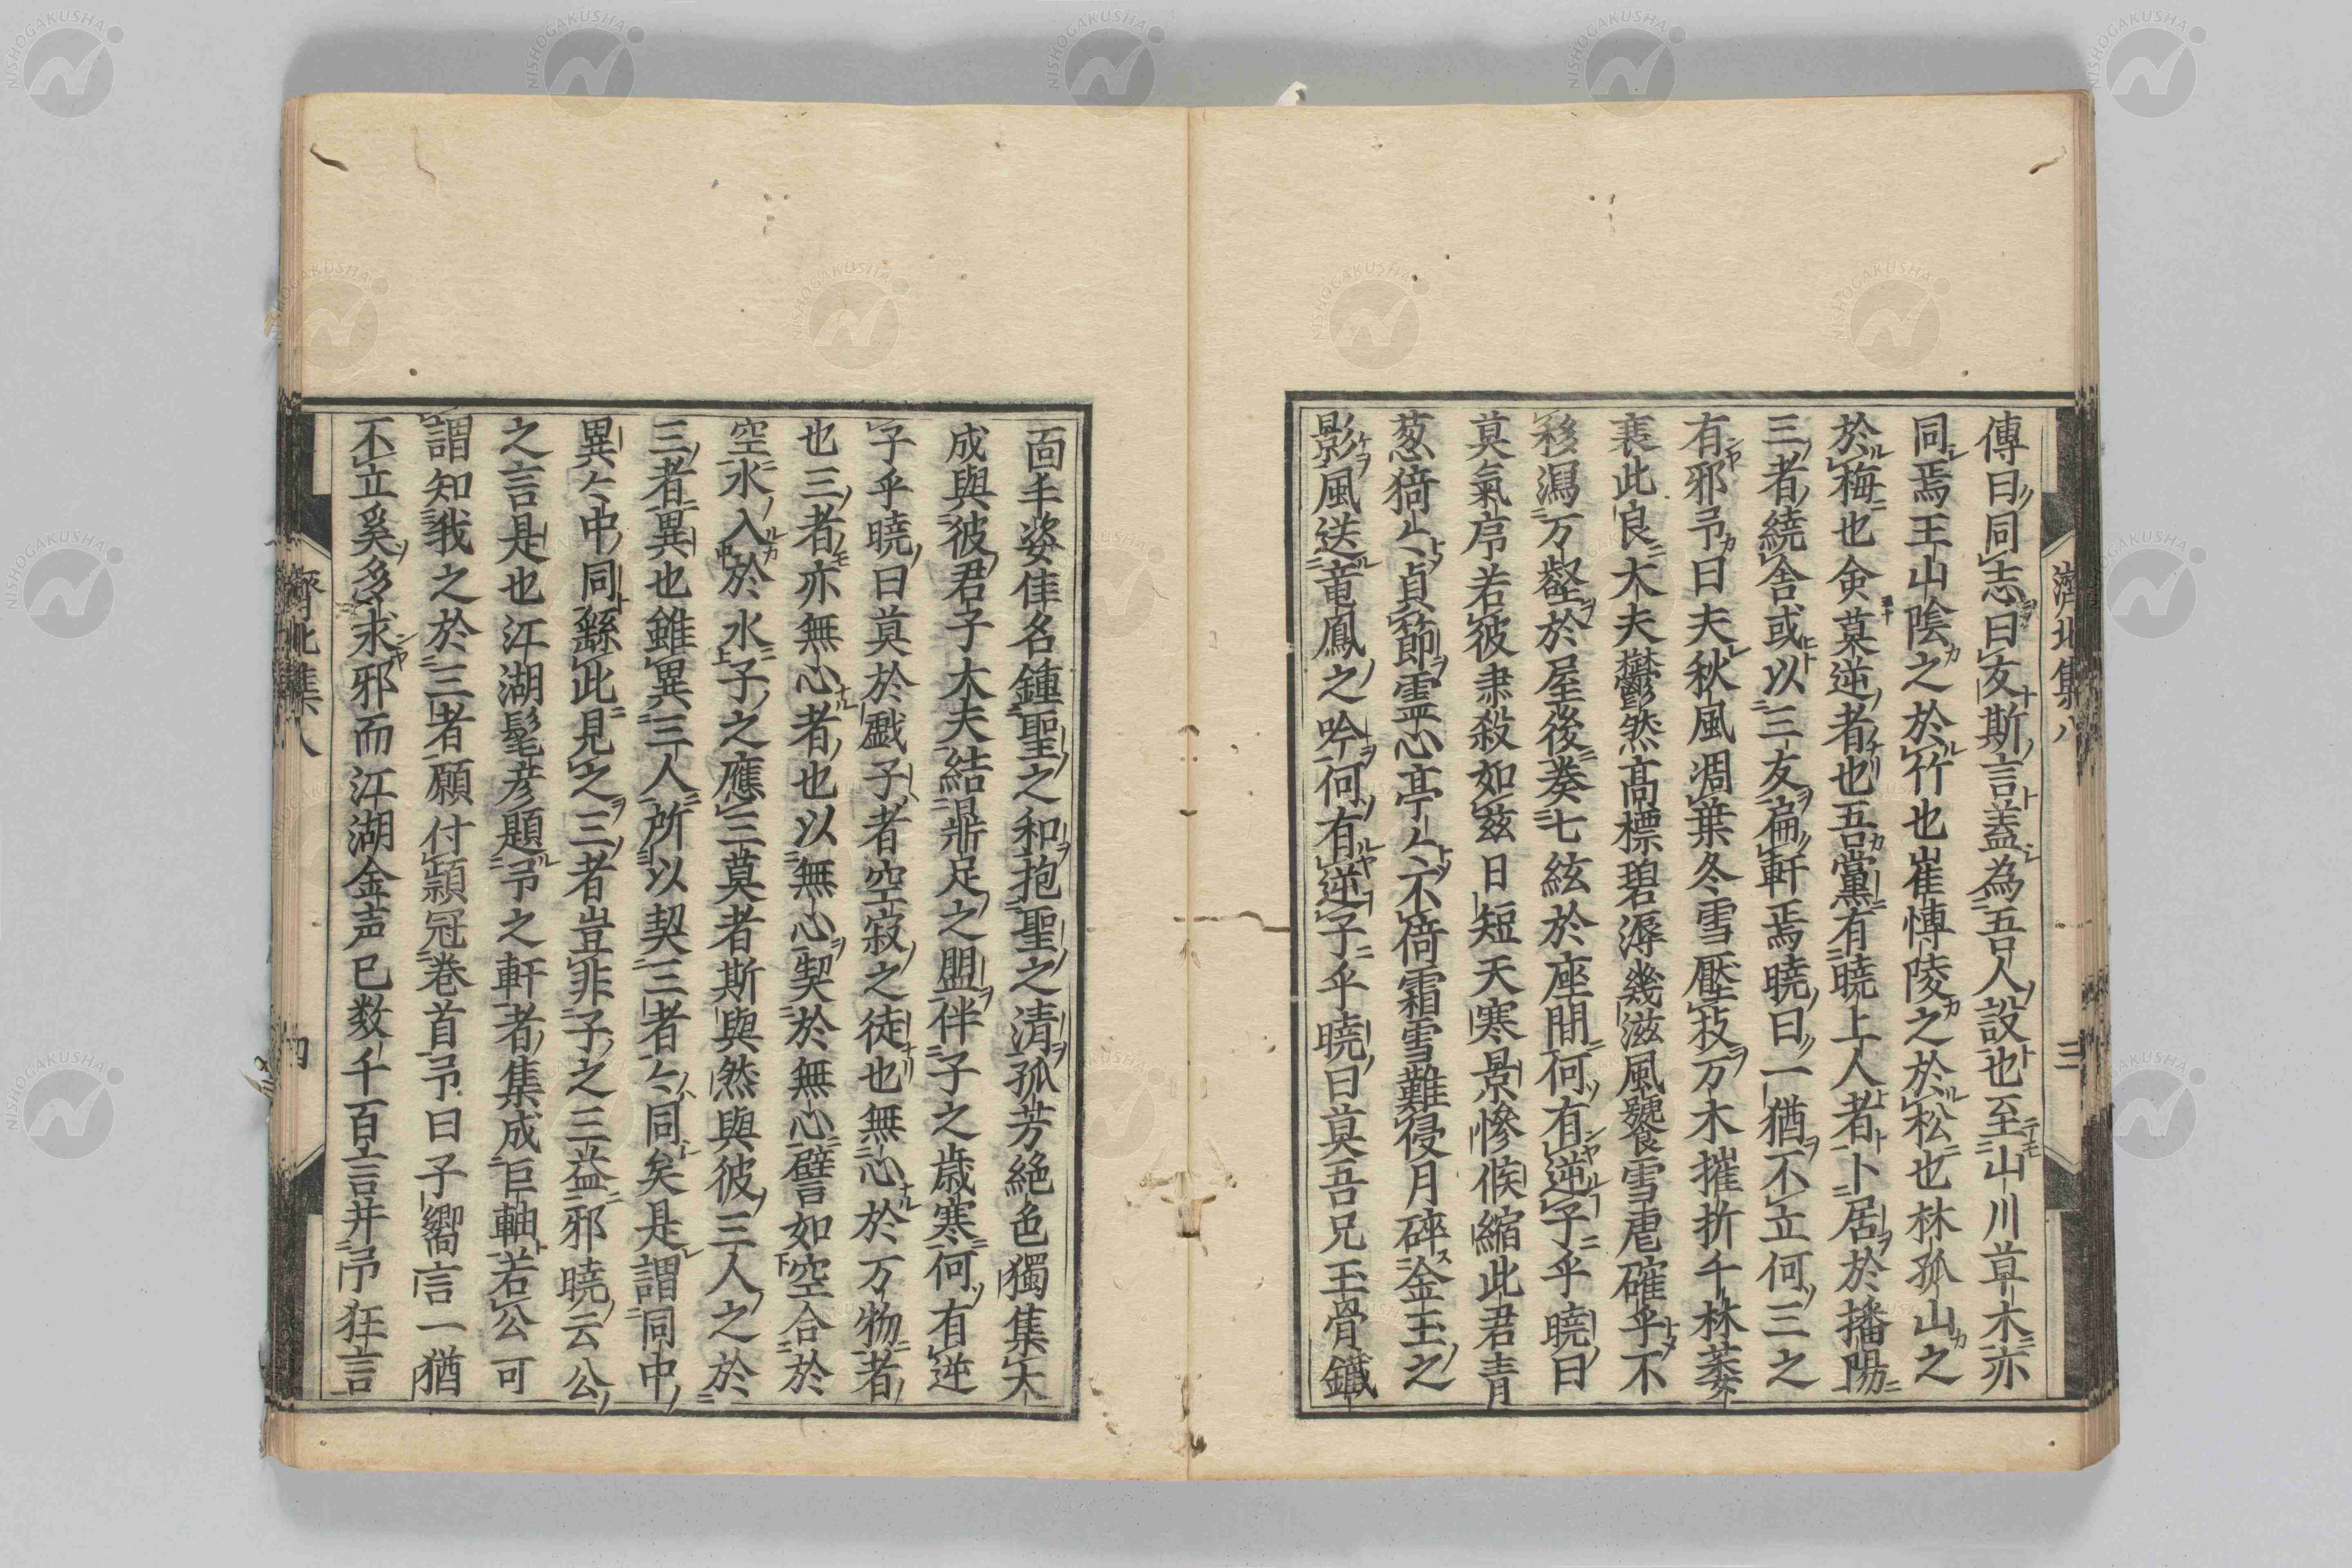 濟北集八
三
傳曰同志曰友斯言盖為吾人設也至山川草木亦
同焉王山陰之於竹也崔愽陵之於松也林孤山之
於梅也僉莫逆者也吾黨有曉上人者卜居於播陽
三者繞舎或以三友扁軒焉曉曰一猶不立何三之
有邪予曰夫秋風凋葉冬雪壓枝万木摧折千林萎
衰此良大夫欝然髙標碧溽幾滋風饕雪虐確乎不
移瀉万壑於屋後奏七絃於座間何有逆子乎曉曰
莫氣序若彼肅殺如茲日短天寒景慘候縮此君青
葱猗〻貞節霊心亭〻不倚霜雪難侵月碎金玉之
影風送竜鳳之吟何有逆子乎曉曰莫吾兄玉骨鐵
面丰姿佳名鍾聖之和抱聖之清孤芳絶色獨集大
成與彼君子大夫結鼎足之盟伴子之歳寒何有逆
子乎曉曰莫於戱子者空寂之徒也無心於万物者
也三者亦無心者也以無心契於無心譬如空合於
空水入於水子之應三莫者斯與然與彼三人之於
三者異也雖異三人所以契三者〻同矣是謂同中
異〻中同繇此見之三者豈非子之三益邪曉云公
之言是也江湖髦彦題予之軒者集成巨軸若公可
謂知我之於三者願付顆冠巻首予曰子嚮言一猶
不立奚多求邪而江湖金声已数千百言并予狂言
濟北集八
四
NISHOGAKUSHA